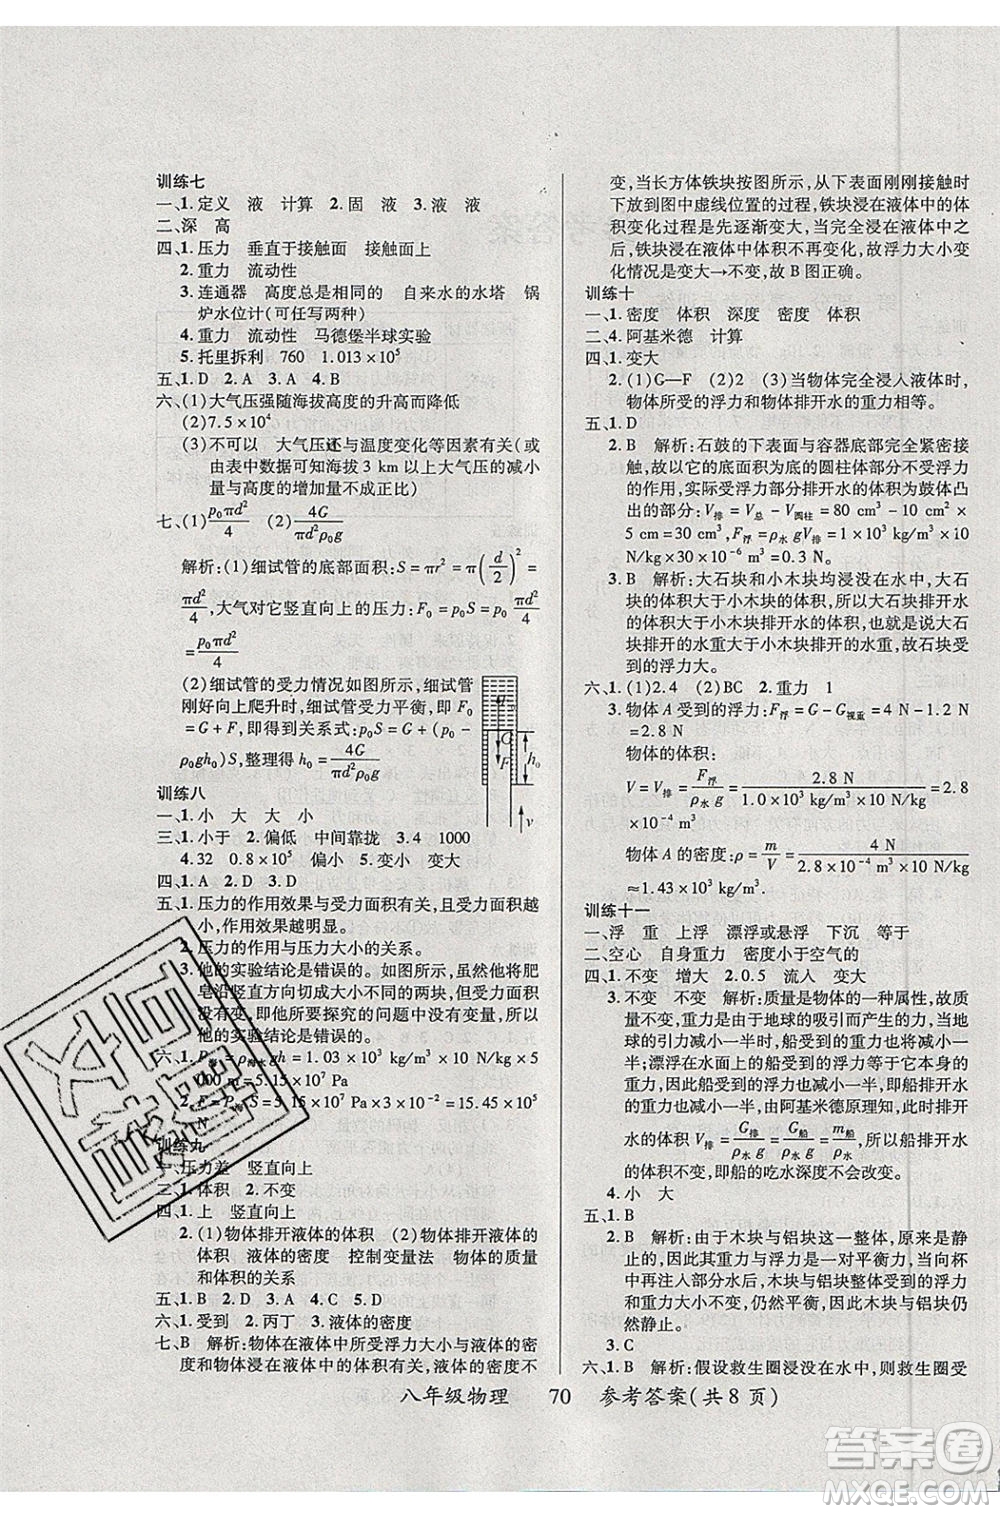 训练七
一、1.定义 液 计算 2.固 液 3.液 液
二、深 高
四、1.压力 垂直于接触面 接触面上
2.重力 流动性
3.连通器 高度总是相同的 自来水的水塔 锅
炉水位计(可任写两种)
4.重力 流动性 马德堡半球实验
5.托里拆利 760 1.013×10⁵
五、1.D 2.A 3.A 4.B
六、(1)大气压强随海拔高度的升高而降低
(2)7.5×10⁴
(3)不可以 大气压还与温度变化等因素有关(或
由表中数据可知海拔 3 km 以上大气压的减小
量与高度的增加量不成正比)
七、(1) p₀πd²/4 (2) 4G/πd²ρ₀g
解析:(1)细试管的底部面积:S=πr²=π(d/2)²=
πd²/4,大气对它竖直向上的压力:F₀=p₀S=
p₀πd²/4
(2)细试管的受力情况如图所示,细试管
刚好向上爬升时,细试管受力平衡,即F₀
=G+F,即存在关系式:p₀S=G+(p₀S-
ρ₀gh₀)S,整理得 h₀= 4G/πd²ρ₀g
G F h₀ v
训练八
一、小 大 大 小
三、1.小于 2.偏低 中间靠拢 3.4 1000
4.32 0.8×10⁵ 偏小 5.变小 变大
四、1.A 2.D 3.D
五、1.压力的作用效果与受力面积有关,且面积越
小,作用效果越明显。
2.压力的作用与压力大小的关系。
3.他的实验结论是错误的。如图所示,将肥
皂沿竖直方向切成大小不同的两块,蒋星
没有控制压力相同,所以他
他的实验结论是错误的。
六、1.
000 m=5.15×10⁷ Pa
2. S=5.15×10⁷ Pa×3 m²=15.45×10⁷
N
训练九
一、压力差 竖直向上
三、1.体积 2.不变
四、1.上 竖直向上
2.(1)物体排开液体的体积 (2)物体排开液体的
体积 液体的密度 控制变量法 物体的质量
和体积的关系
五、1.B 2.D 3.A 4.C 5.D
六、1.受到 2.丙丁 3.液体的密度
七、B 解析:物体在液体中所受浮力大小与液体的密
度和物体浸在液体中的体积有关,液体的密度不
变,当长方体铁块按图所示,从下表面刚刚接触时
下放到图中虚线位置的过程中,铁块浸在液体中的体
积变化过程是先逐渐变大,当长方体铁块浸没到
时,铁块浸在液体中体积不再变化,故浮力大小变
化情况是变大→不变,故 B 图正确。
训练十
一、1.密度 体积 深度 密度 体积
二、4.阿基米德 计算
四、1.变大
2.(1)G-F (2)2 (3)当物体完全浸入液体时,
物体所受的浮力和物体排开水的重力相等。
五、1.D
2.B 解析:石鼓的下表面与容器底部完全紧密接
触,故以石鼓的底面积为底的圆柱体部分不受浮力
的作用,实际受浮力部分排开水的体积为鼓体凸
出的部分,V排=V总-V圆柱=80 cm³-10 cm²×
5 cm=30 cm³,F浮=ρ水gV排=1.0×10³ kg/m³×10
N/kg×30×10⁻⁶ m³=0.3 N。
3.B 解析:大石块和小木块均浸没在水中,大石
块的体积大于小木块的体积,所以大石块排开水
的体积大于小木块排开水的体积,也就是说,大
石块排开的水重大于小木块排开的水重,故石块受
到的浮力大。
六、1.(1)2.4 (2)BC 2.重力 1
3.物体 A 受到的浮力:F浮=G-G视重=4 N-1.2 N
=2.8 N
物体的体积:
V=V排=F浮/ρ水g=2.8 N/1.0×10³ kg/m³×10 N/kg=2.8
×10⁻⁴ m³
物体 A 的密度:ρ=m/V=4 N/2.8×10⁻⁴ m³×10 N/kg
≈1.43×10³ kg/m³
训练十一
一、浮 重 上浮 漂浮或悬浮 下沉 等于
二、空心 自身重力 密度小于空气的
四、1.不变 增大 2.0.5 流入 变大
3.不变 不变 解析:质量是物体的一种属性,故质
量不变;重力是由于地球的吸引而产生的力,当
地球的引力减小一半时,船所受的重力也减小一
半;漂浮在水面上的船受到的浮力等于它本身的
重力,因此船受到的浮力也减小一半,则排开水的
重力也减小一半,由阿基米德原理知,船排开水
的体积 V排=G排/ρ水g=G船/ρ水g=m船g/ρ水g=m船/ρ水不变,
故体积不变,即船的吃水深度不会改变。
4.小 大
五、1.B
2.B 解析:由于木块与铝块的整体,原来是静
止的,因此其重力与浮力是一对平衡力,当向杯
中再注入部分水后,木块与铝块整体受到的浮力
和重力不变,仍然平衡,所以木块与铝块仍
然静止。
3.C
六、1.B 解析:假设救生圈浸没在水中,则救生圈受
八年级物理 70 参考答案(共 8 页)
答案圈
MXQE.COM